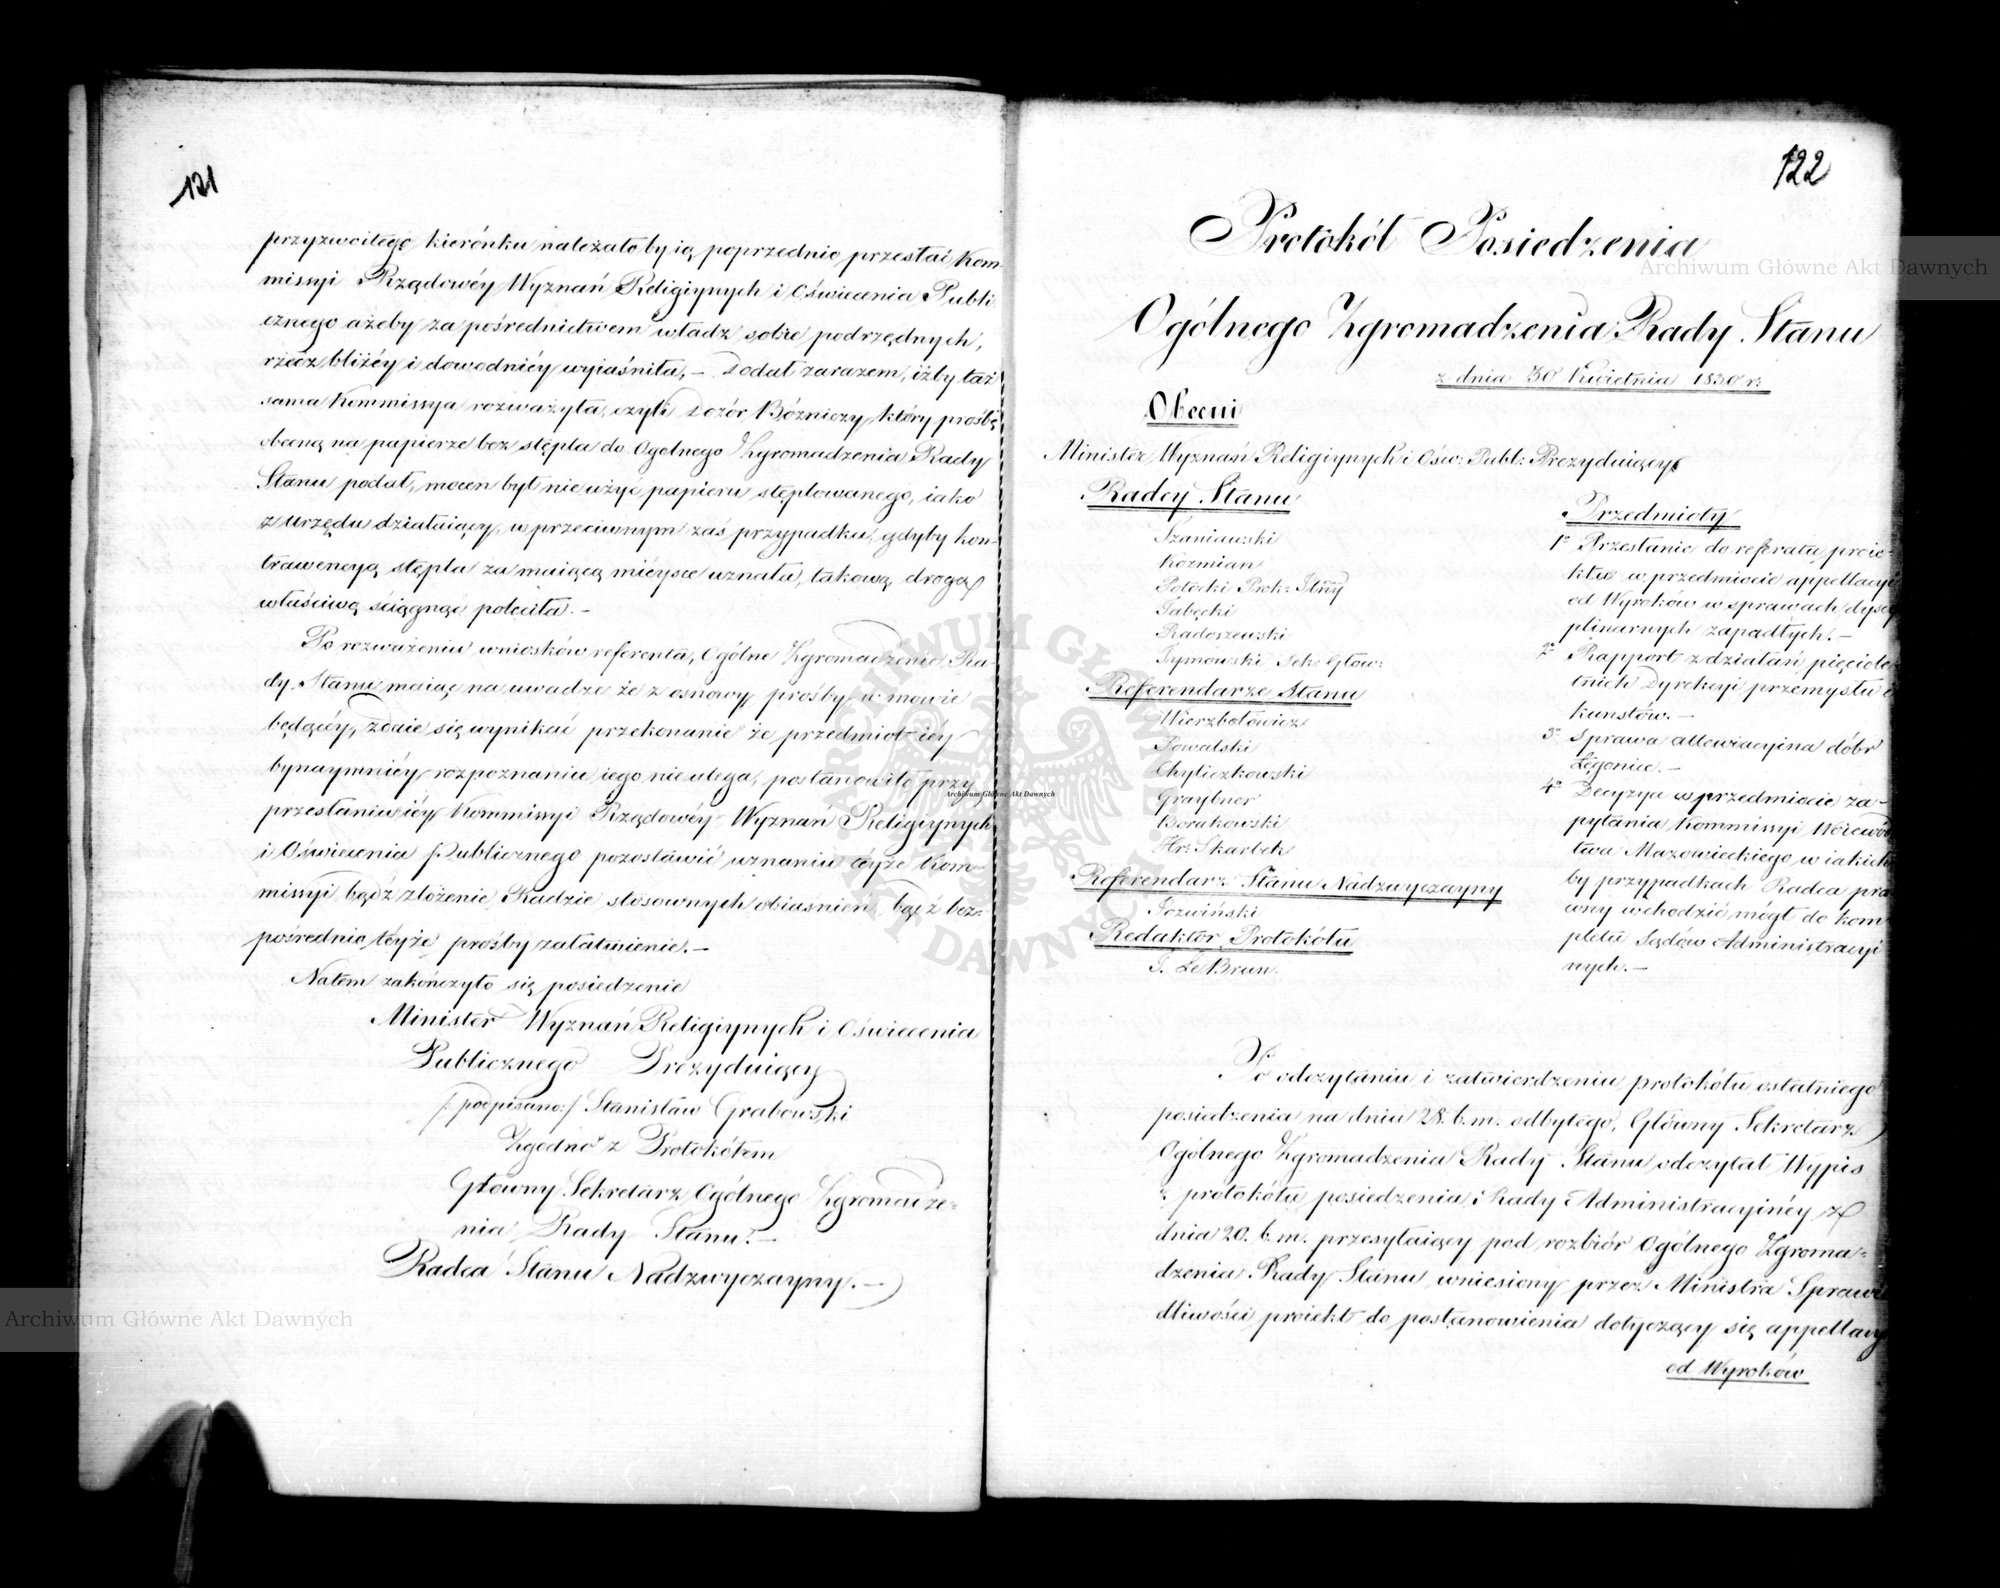 121
przyzwoitego kierónku należałoby ią poprzednio przesłać Kom-
missyi Rządowéy Wyznań Religiynych i Oświecenia Publi-
cznego ażeby za pośrednictwem władz sobie podrzędnych,
rzecz bliżéy i dowodniéy wyiaśniła, — dodał zarazem, iżby taż
sama Kommissya rozważyła, czyli Dozór Bóżniczy, który prośbę
obecną na papierze bez stępla do Ogólnego Zgromadzenia Rady
Stanu podał, mocen był nie użyć papieru stęplowanego, iako
z urzędu działaiący, w przeciwnym zaś przypadku, gdyby kon-
trawencyą stępla za maiącą mieysce uznała, takową drogą
właściwą ściągnąć poleciła. —
Po rozważeniu wniosków referenta, Ogólne Zgromadzenie Ra-
dy Stanu maiąc na uwadze że z osnowy prośby w mowie
będącéy, zdaie się wynikać przekonanie że przedmiot iéy
bynaymniéy rozpoznaniu iego nie ulega, postanowiło przy
przesłaniu iéy Kommissyi Rządowéy Wyznań Religiynych
i Oświecenia Publicznego pozostawić uznaniu téyże Kom-
missyi bądź złożenie Radzie stosownych obiaśnień, bądź bez-
pośrednio téyże prośby załatwienie. —
Natem zakończyło się posiedzenie
Minister Wyznań Religiynych i Oświecenia
Publicznego Prezyduiący
/: podpisano :/ Stanisław Grabowski
Zgodno z Protokółem
Główny Sekretarz Ogólnego Zgromadze-
nia Rady Stanu. —
Radca Stanu Nadzwyczayny. —
122
Protokół Posiedzenia
Ogólnego Zgromadzenia Rady Stanu
z dnia 30 Kwietnia 1830 r:
Obecni
Minister Wyznań Religiynych i Ośw: Publ: Prezyduiący
Radcy Stanu
Szaniawski
Kozmian
Potocki Prok:
Radoszewski
Tymowski Sek: Głow:
Referendarze Stanu
Wierzbołowicz
Kowalski
Chyliczkowski
Graybner
Borakowski
Hr: Skarbek
Referendarz Stanu Nadzwyczayny
Redaktor Protokółu
J. Le Brun
Przedmioty
1o Przesłanie do referatu proie-
ktu w przedmiocie appellacyi
od Wyroków w sprawach dyscy
plinarnych zapadłych. —
2o Rapport z działań pięciole
tnich Dyrekcyi przemysłu i
kunsztów. —
3o Sprawa allewiacyina dóbr
Łęgoniec. —
4o Decyzya w przedmiocie za-
pytania Kommissyi Woiewódz
twa Mazowieckiego w iakich
by przypadkach Radca pra
wny wchodzić mógł do kom
pletu Sądów Administracyi
nych. —
Po odczytaniu i zatwierdzeniu protokółu ostatniego
posiedzenia na dniu 28. b.m. odbytego, Główny Sekretarz
Ogólnego Zgromadzenia Rady Stanu odczytał Wypis
z protokółu posiedzenia Rady Administracyinéy z
dnia 20. b.m. przesyłaiący pod rozbiór Ogólnego Zgroma-
dzenia Rady Stanu wniesiony przez Ministra Sprawie
dliwości proiekt do postanowienia dotyczący się appellacyi
od Wyroków
Archiwum Główne Akt Dawnych
Archiwum Główne Akt Dawnych
Archiwum Główne Akt Dawnych
ARCHIWUM GŁÓWNE AKT DAWNYCH